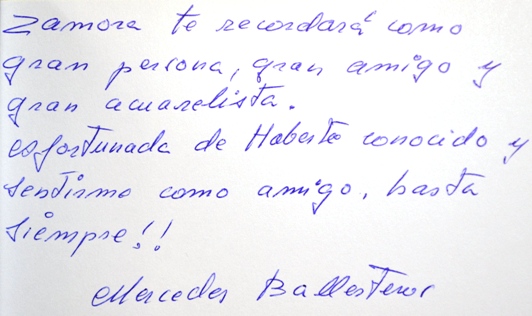 Zamora te recordará como
gran persona, gran amigo y
gran acuarelista.
esfortunada de Haberte conocido y
sentirme como amigo, hasta
siempre!!
Mercedes Ballesteros